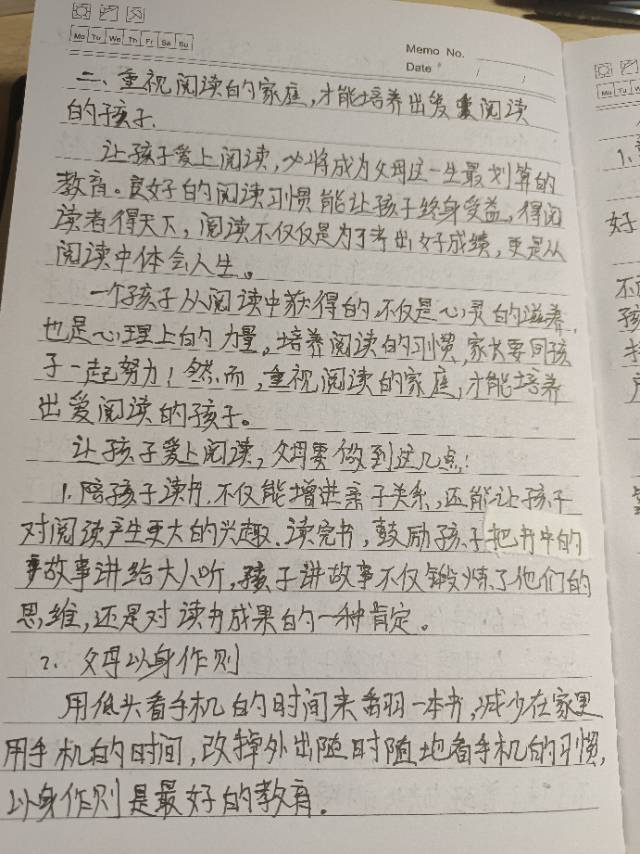 Mo Tu We Th Fr Sa Su
Memo No.
Date / /
二、重视阅读的家庭,才能培养出爱阅读
的孩子.
让孩子爱上阅读,必将成为父母这一生最划算的
教育。良好的阅读习惯能让孩子终身受益,得阅
读者得天下,阅读不仅仅是为了考出好成绩,更是从
阅读中体会人生。
一个孩子从阅读中获得的,不仅是心灵的滋养,
也是心理上的力量。培养阅读的习惯,家长要同孩
子一起努力!然而,重视阅读的家庭,才能培养
出爱阅读的孩子。
让孩子爱上阅读,父母要做到这几点:
1.陪孩子读书.不仅能增进亲子关系,还能让孩子
对阅读产生更大的兴趣.读完书,鼓励孩子把书中的
事故事讲给大人听,孩子讲故事不仅锻炼了他们的
思维,还是对读书成果的一种肯定。
2. 父母以身作则
用低头看手机的时间来翻一本书,减少在家里
用手机的时间,改掉外出随时随地看手机的习惯,
以身作则是最好的教育.
1.
好
不
孩